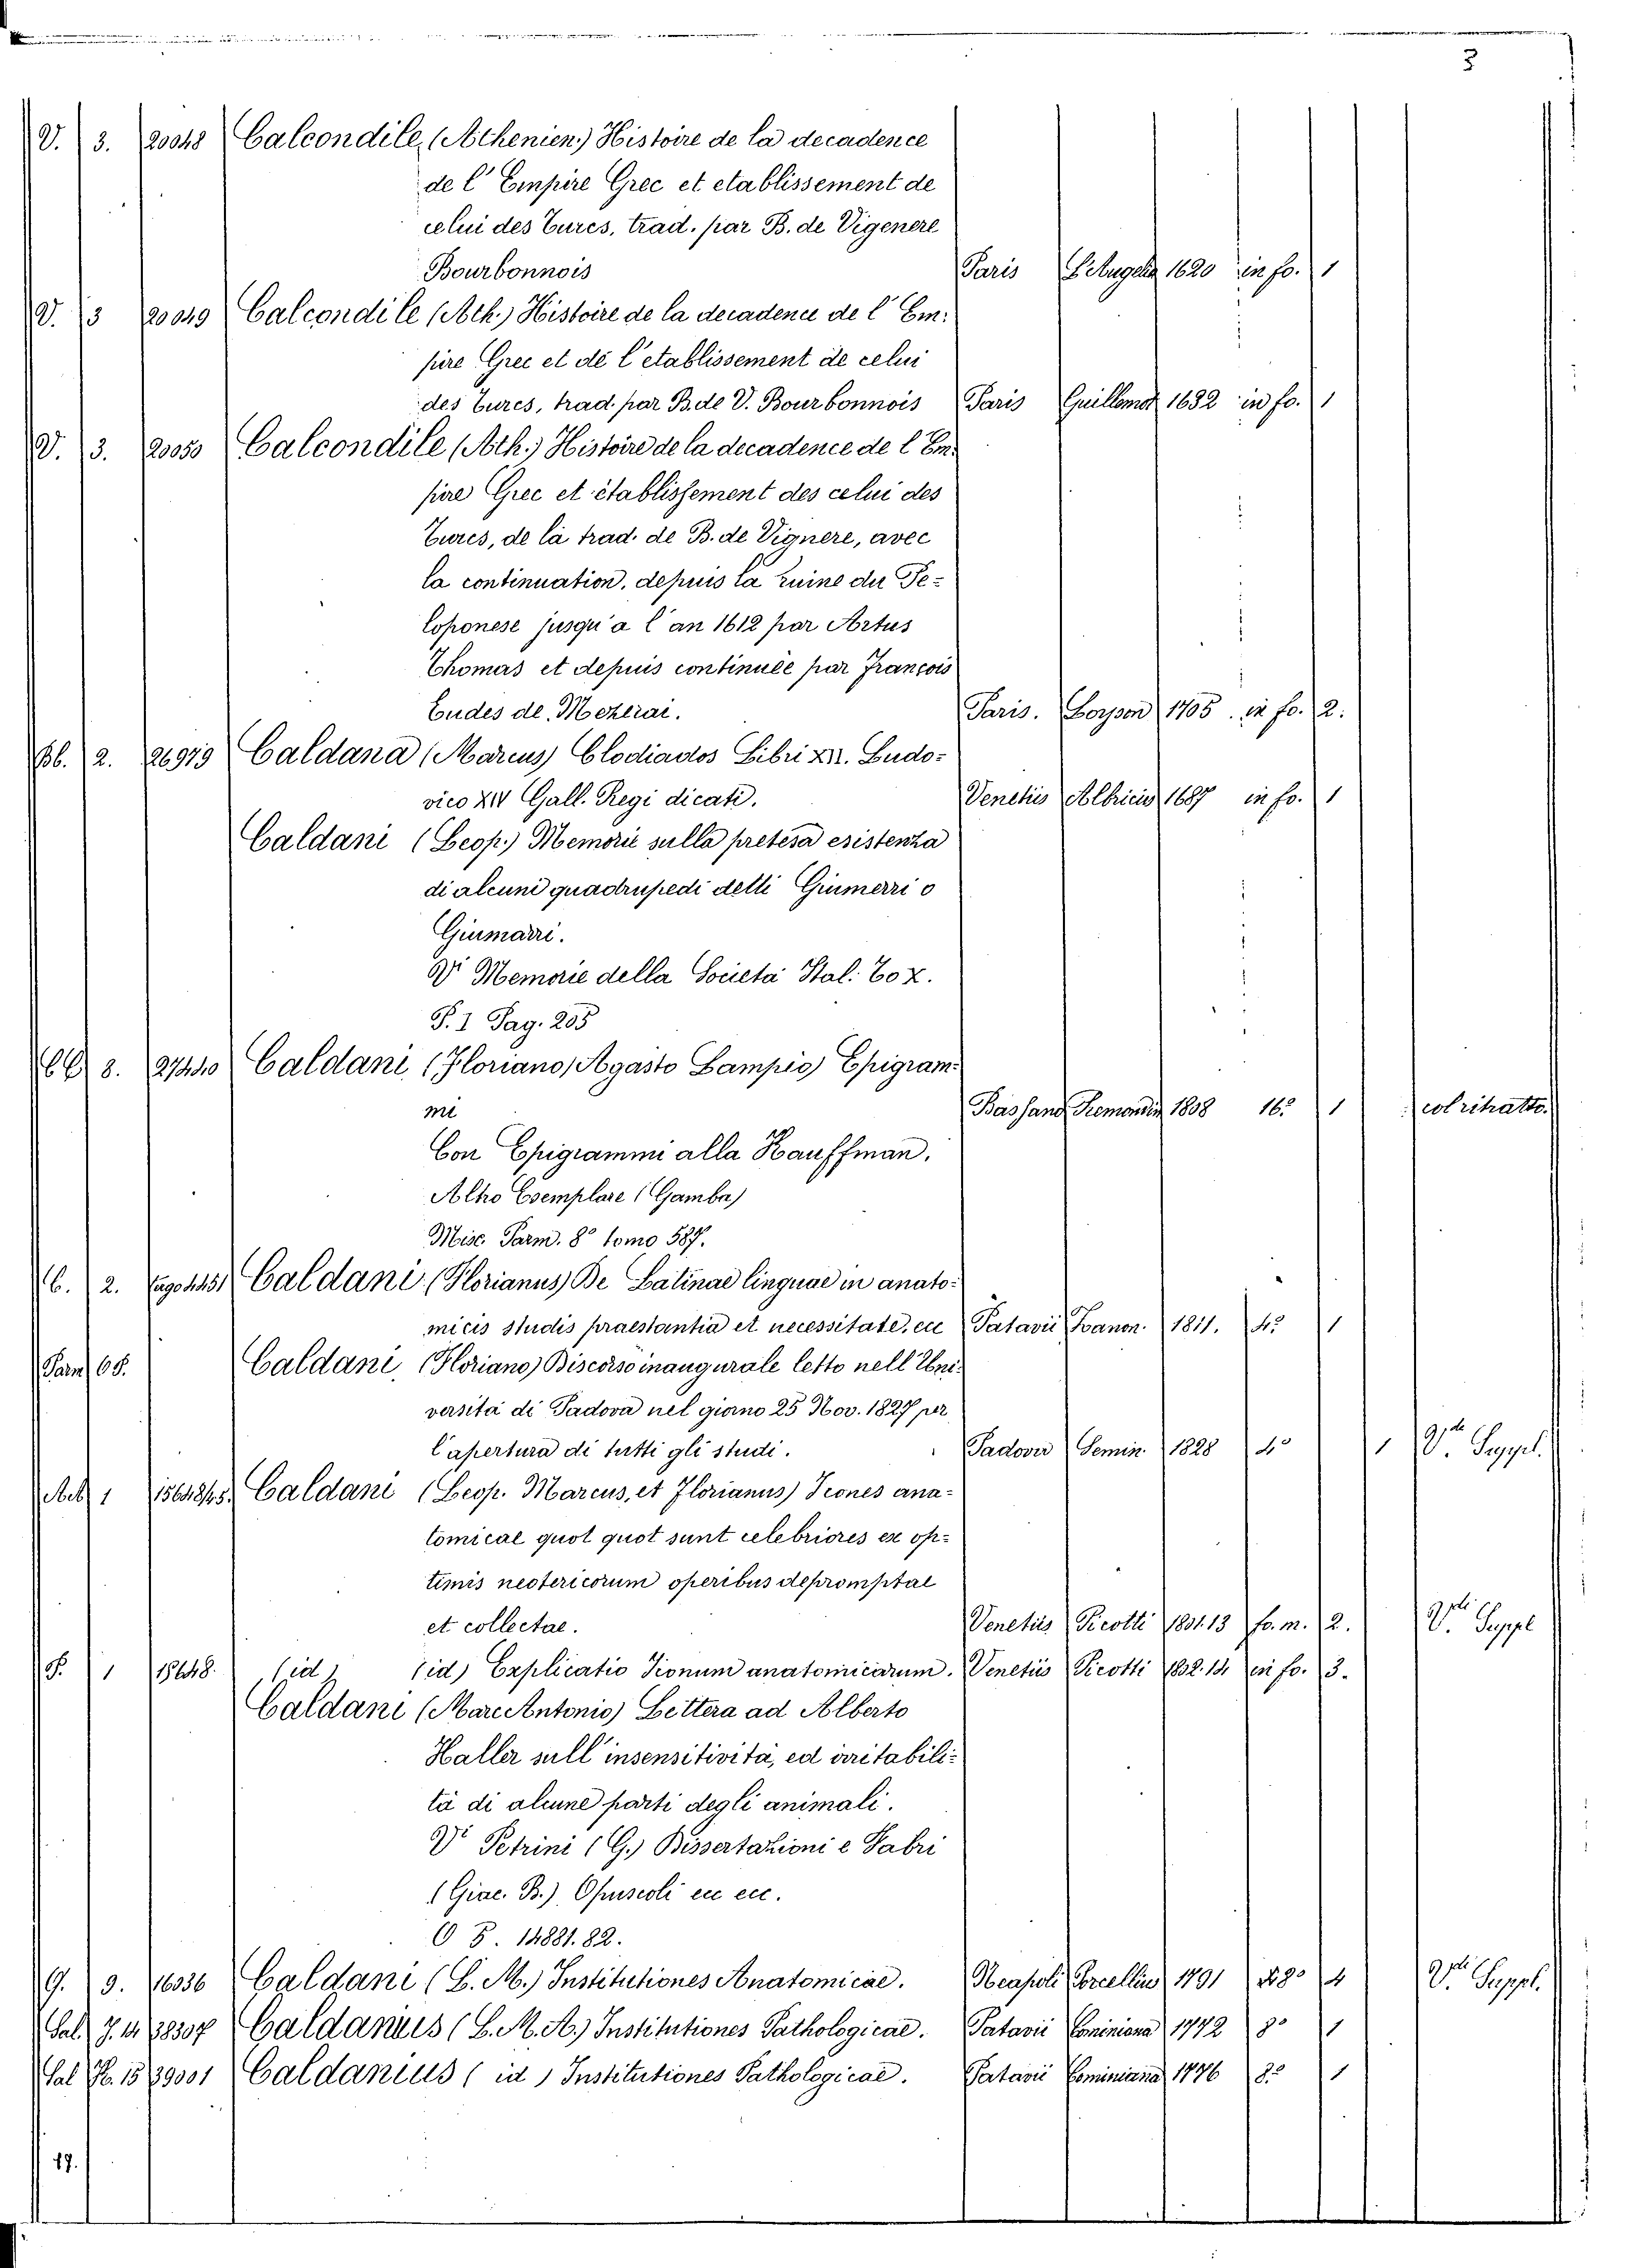 3
V. 3. 20048 Calcondile, (Athenien.) Histoire de la decadence
de l' Empire Grec et etablissement de
celui des Turcs, trad. par B. de Vigenere
Bourbonnois Paris 1620 in fo. 1
V. 3 20049 Calcondile (Ath.) Histoire de la decadence de l' Em:
pire Grec et de l'etablissement de celui
des Turcs, trad. par B. de V. Bourbonnois Paris Guillemot 1632 in fo. 1
V. 3. 20050 Calcondile (Ath.) Histoire de la decadence de l'Em-
pire Grec et établissement des celui des
Turcs, de la trad. de B. de Vignere, avec
la continuation, depuis la ruine du Pe=
loponese jusqu'a l'an 1612 par Artus
Thomas et depuis continuée par François
Eudes de Mezerai. Paris. 1705. in fo. 2.
Bb. 2. 26979 Caldana (Marcus) Clodiados Libri XII. Ludo=
vico XIV Gall. Regi dicati. Venetiis Albricis 1687 in fo. 1
Caldani (Leop.) Memorie sulla pretesa esistenza
di alcuni quadrupedi detti Giumerri o
Giumarri.
Vi Memorie della Società Ital: To X.
P. I Pag. 205
8. 27440 Caldani, (Floriano, Agasto Lampio) Epigram=
mi Bassano Remondin 1808 16.o 1 col ritratto.
Con Epigrammi alla Kauffman.
Altro Esemplare (Gamba)
Misc. Parm. 8o tomo 587.
C. 2. Caldani, (Florianus) De Latinae linguae in anato=
micis studis praestantia et necessitate, ecc Patavii Zanon. 1811. 4.o 1
Parm 65. Caldani, (Floriano) Discorso inaugurale letto nell'Uni-
versità di Padova nel giorno 25 Nov. 1827 per
l'apertura di tutti gli studi. Padova Semin. 1828 4o 1 Vdi Suppl.
1 Caldani (Leop. Marcus, et Florianus) Icones ana=
tomicae quot quot sunt celebriores ex op=
timis neotericorum operibus depromptae
et collectae. Venetiis Picotti 1801.13 fo. m. 2. Vdi Suppl
1 15648. (id) (id) Explicatio Iconum anatomicarum. Venetiis Picotti 1802.14 in fo. 3.
Caldani (Marc'Antonio) Lettera ad Alberto
Haller sull'insensitività, ed irritabili=
tà di alcune parti degli animali.
Vi Petrini (G.) Dissertazioni e Fabri
(Giac. B.) Opuscoli ecc ecc.
14881.82.
G. 9. 16336 Caldani (L. M.) Institutiones Anatomicae. Neapoli Porcellius 1791 8o 4 Vdi Suppl.
Sal. J. 14 38307 Caldanius (L. M. A.) Institutiones Pathologicae. Patavii Cominiana 1772 8o 1
Sal 15 39001 Caldanius (id) Institutiones Pathologicae. Patavii Cominiana 1776 8.o 1
17.